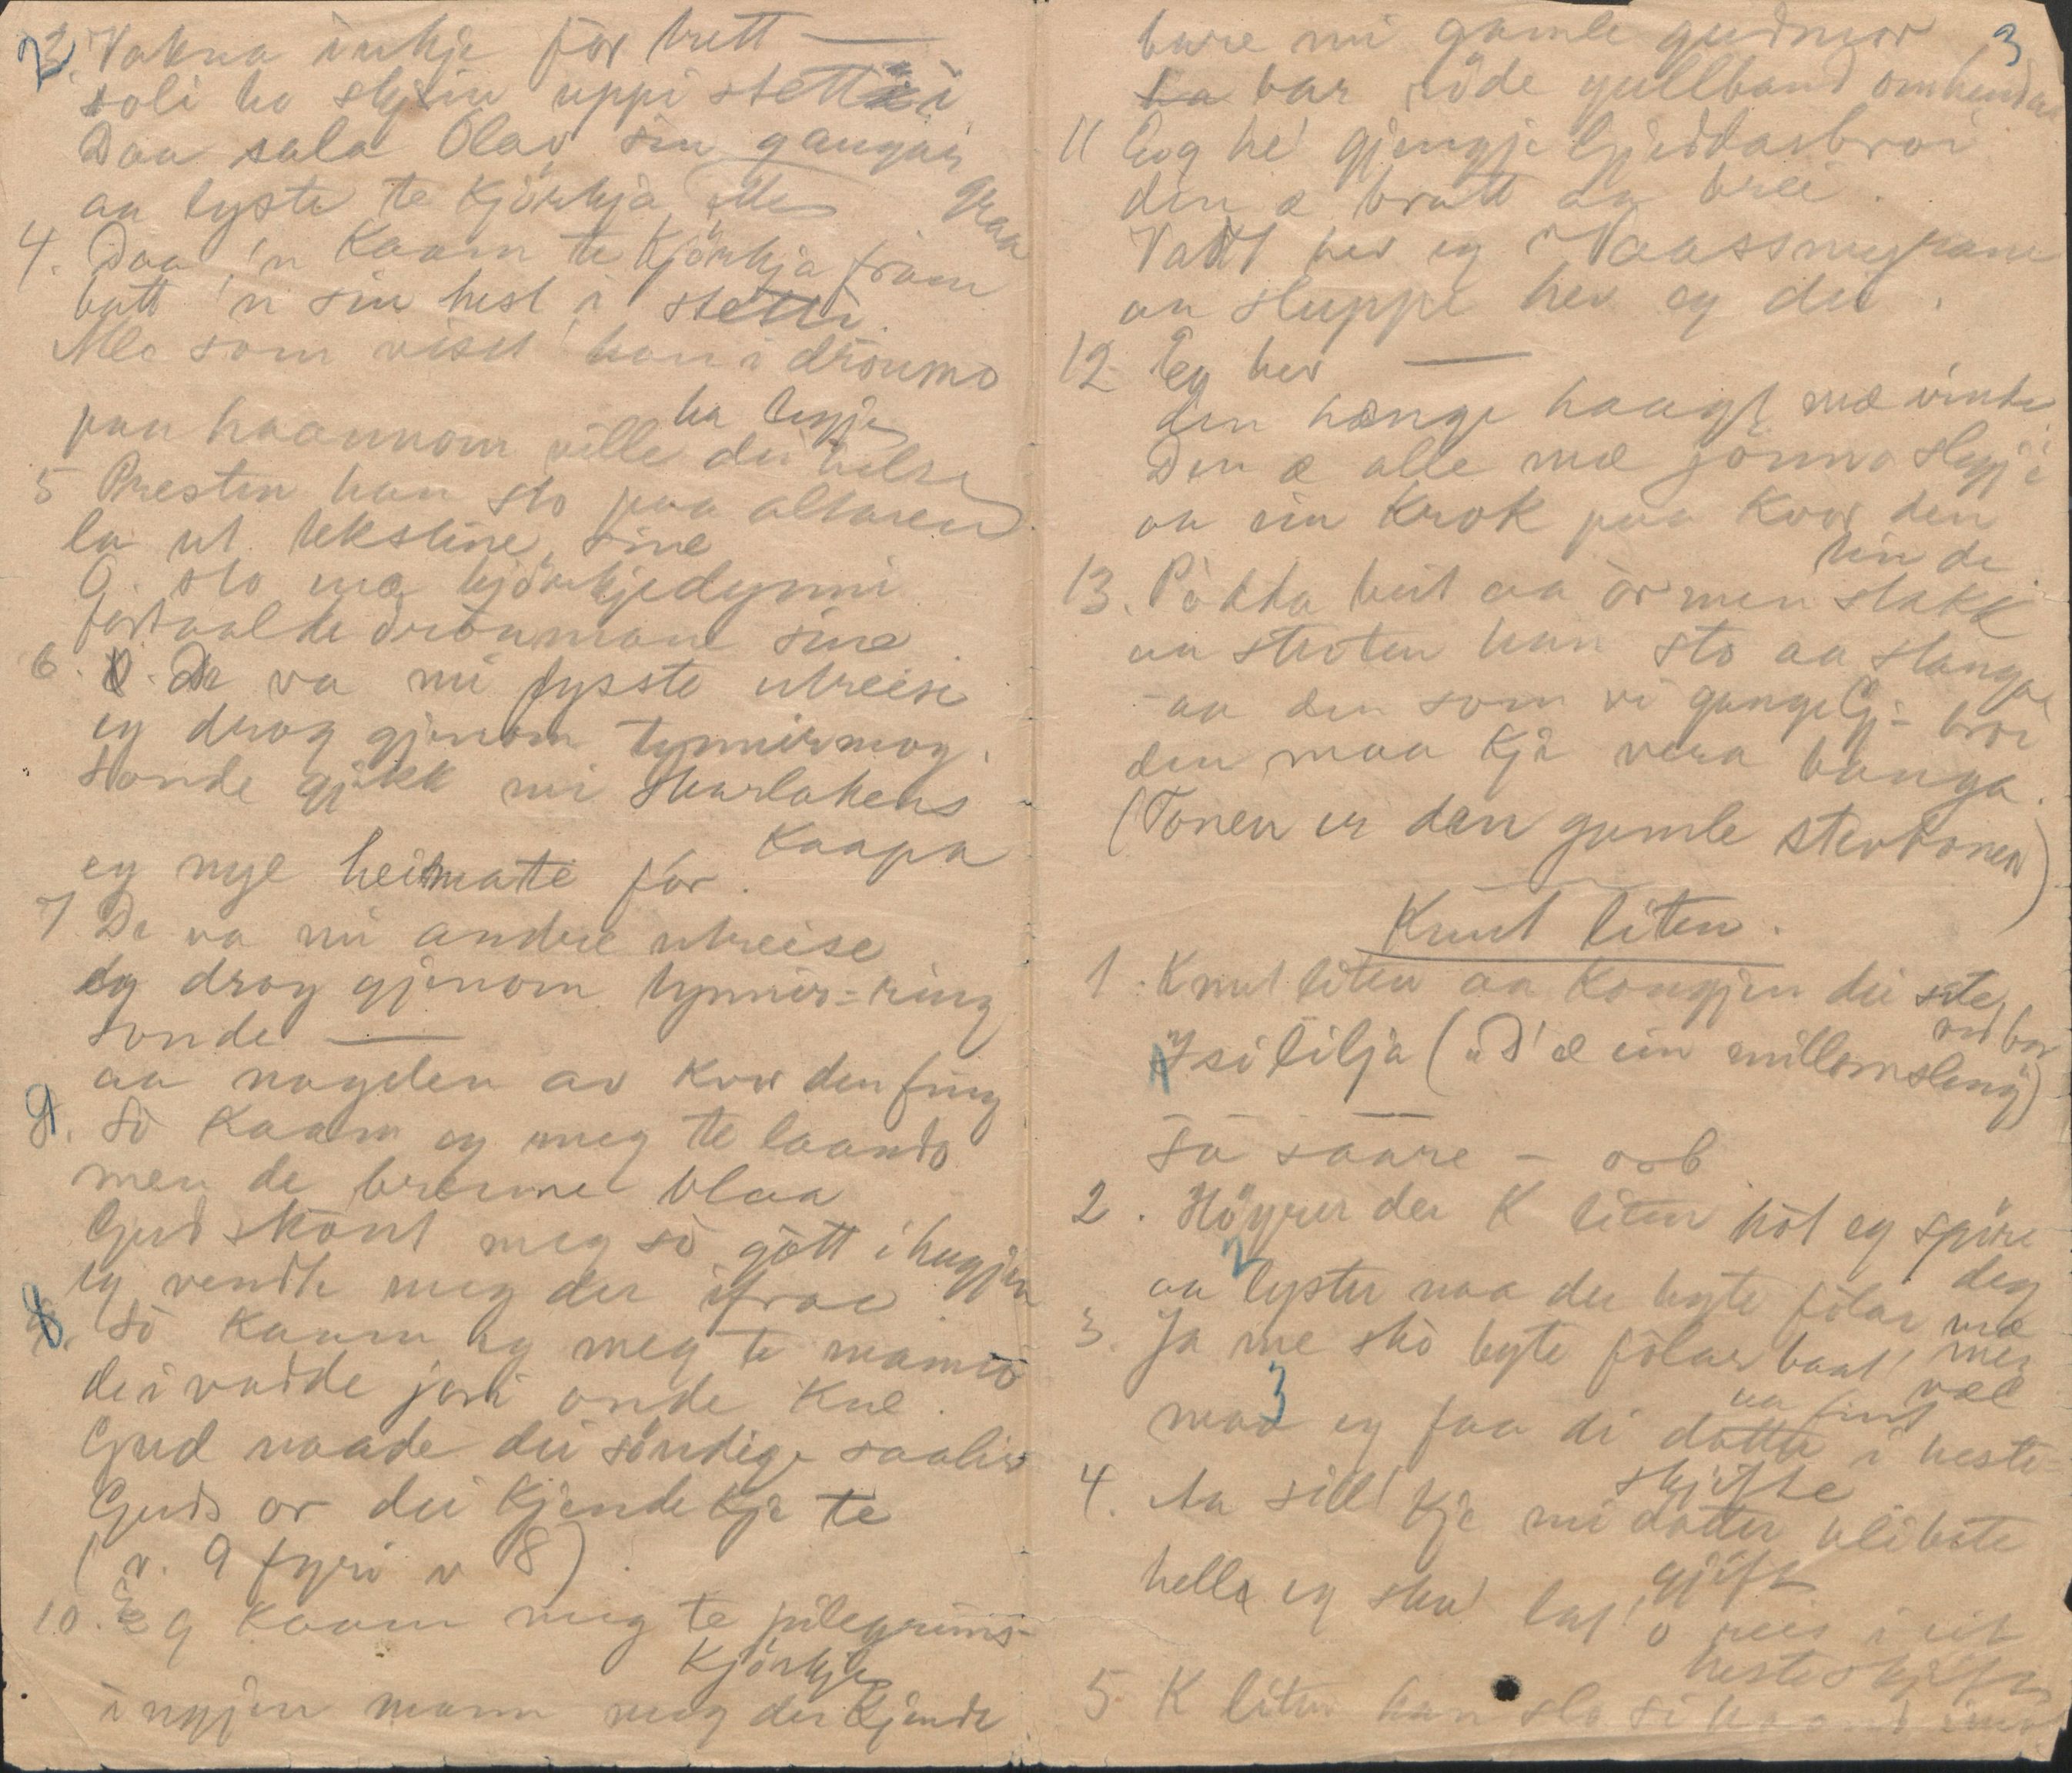 2
3. Vakna inkje før hett —
soli ho skjein uppi stetti
Daa sala Olav sin gangar
graa
aa lyste te Kjörkja
4. Daa 'n Kaam te Kjörkja fram
batt 'n sin hest i stetti
Alle som viste han i dröumo
ha legje
paa haannom ville dei helse
5 Presten han sto paa altaren
la ut tekstine sine
O. sto mæ kjörkjedynni
fortaalde dröumane sine
6. De va mi fysste utreise
eg drog gjenom tynnirmog.
Sonde gjikk mi skarlakens
Kaapa
eg nye heimatte for.
7 De va mi andre utreise
eg drog gjenom tynnir-ring
sonde —
aa naglen av kvor den fing
9. So Kaam eg meg te laando
men de brenne blaa
Gud skaut meg so gott i hugjen
eg vendte meg der ifraa
8. So Kaam eg meg te
dei vadde jori onde Kne.
Gud naade dei söndige saalir
Guds or dei Kjende Kje te
(v. 9 fyri v 8)
10. Eg Kaam meg te pilegrims-
Kjörkje
ingjen mann meg der Kjende
3
bare mi gamle gudmor
bar röde gullband om hendan
11 Eg he' gjengje Gjeddasbroi
den æ bratt aa brei.
Vadt hev eg Vaassmyrane
aa sluppe hev eg dei.
12 Eg hev —
den hænge haagt mæ vinde
Den æ alle mæ jönno slegji
aa ein Krok paa Kvor den
tinde.
13. Pödda beit aa ormen stakk
aa stuten han sto aa stanga
- aa den som vi gange Gj- broi
den maa Kje vera banga.
(Tonen er den gamle stevtonen)
Knut liten.
1. Knut liten aa Kongjen dei sete
ved bor
1 Isililja („D' æ ein millomsleng")
Så såare — osb
2. Höyrer du K liten höt eg spöre
deg
2
aa lyster naa du byte folar mæ
meg
3. Ja me sko byte folar baat' væl
aa fint
3
maa eg faa di dotter i heste-
skjifte
4. Aa sill' Kje mi dotter blibate
gjift
hella eg ska' lat' o reis i eit
hesteskjifte
5. K liten han slo si haand imot